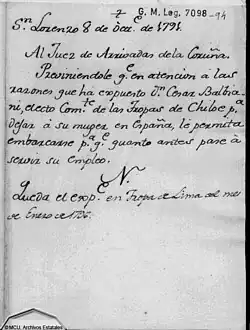 7
G. M. Leg. 7098-94
Sn. Lorenzo 8 de Dre. de 1791.
Al Juez de Arrivadas de la Coruña.
Previniendole qe. en atencion a las
razones que ha expuesto Dn. Cesar Balbia-
ni, electo Comte. de las Tropas de Chiloe pa.
dejar á su muger en España, le permita
embarcarse pa. qe. quanto antes pase à
servir su Empleo.
N.
Queda el expte. en Tropa de Lima del mes
de Enero de
©MCU. Archivos Estatales